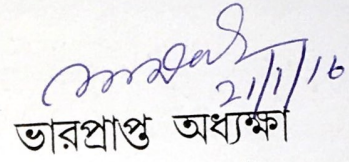 21/1/16
ভারপ্রাপ্ত অধ্যক্ষা